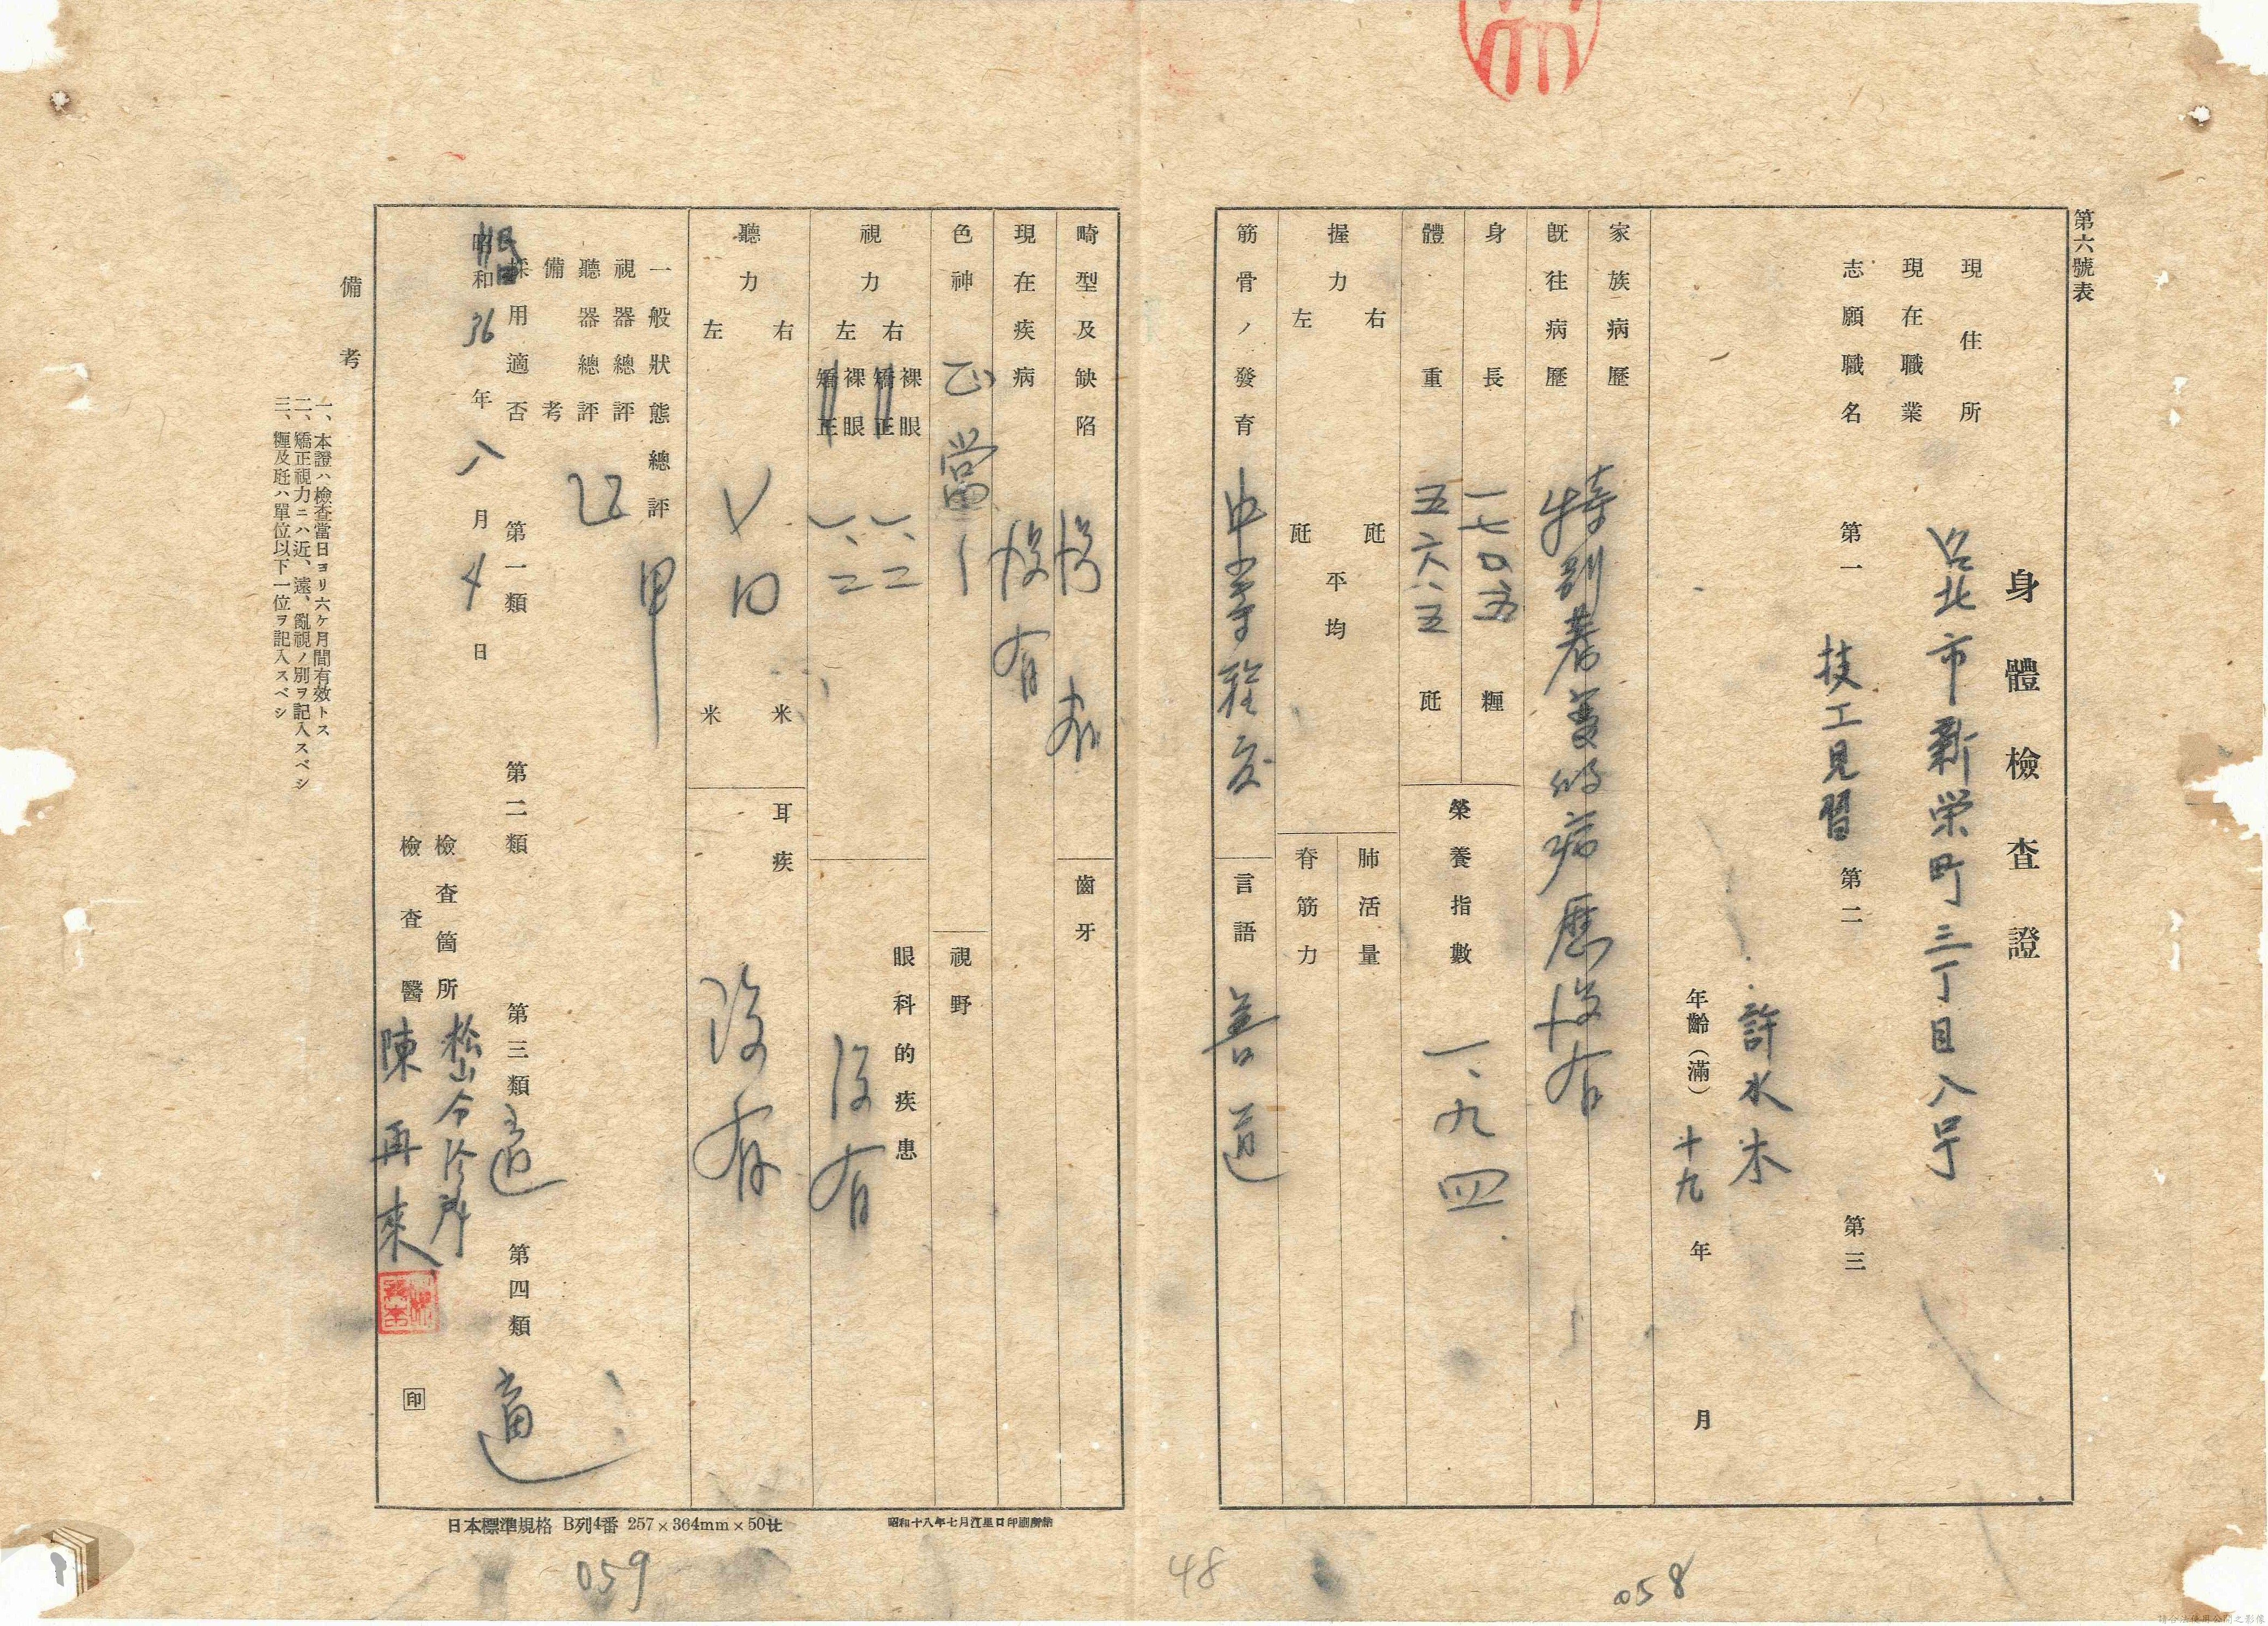 第六號表
身體檢查證
現住所 台北市新栄町三丁目八号
現在職業
志願職名 第一 技工見習 第二 第三
許水木
年齡（滿） 十九 年 月
家族病歷
既往病歷 特別着萎的病歷没有
身長 一七〇、五 糎
體重 五六、五 瓩
榮養指數 一、九四
握力 右 瓩 左 瓩 平均
肺活量
脊筋力
筋骨ノ發育 中等程度
言語 善道
畸型及缺陷 没有
齒牙
現在疾病 没有
色神 正當
視野
視力 右 裸眼 一、二 矯正 左 裸眼 一、二 矯正
眼科的疾患 没有
聽力 右 米 左 米
耳疾 没有
一般狀態總評 甲
視器總評
聽器總評
備考
採用適否 第一類 第二類 第三類 適 第四類 適
和 36 年 八 月 4 日
檢查箇所 松山
檢查醫 陳再來 印
備考
一、本證ハ檢查當日ヨリ六ケ月間有效トス
二、矯正視力ニハ近、遠、亂視ノ別ヲ記入スベシ
三、糎及瓩ハ單位以下一位ヲ記入スベシ
日本標準規格 B列4番 257×364mm×50
昭和十八年七月
059
48
058